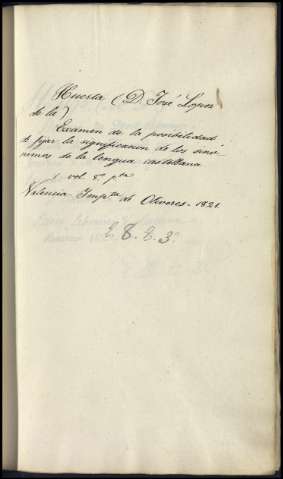 Huerta (D. José Lopez
de la)
Examen de la posibilidad
de fijar la significacion de los sinó
nimos de la lengua castellana
1 vol 8º pta
Valencia Impta de Oliveres - 1821
E. 8. E. 3º